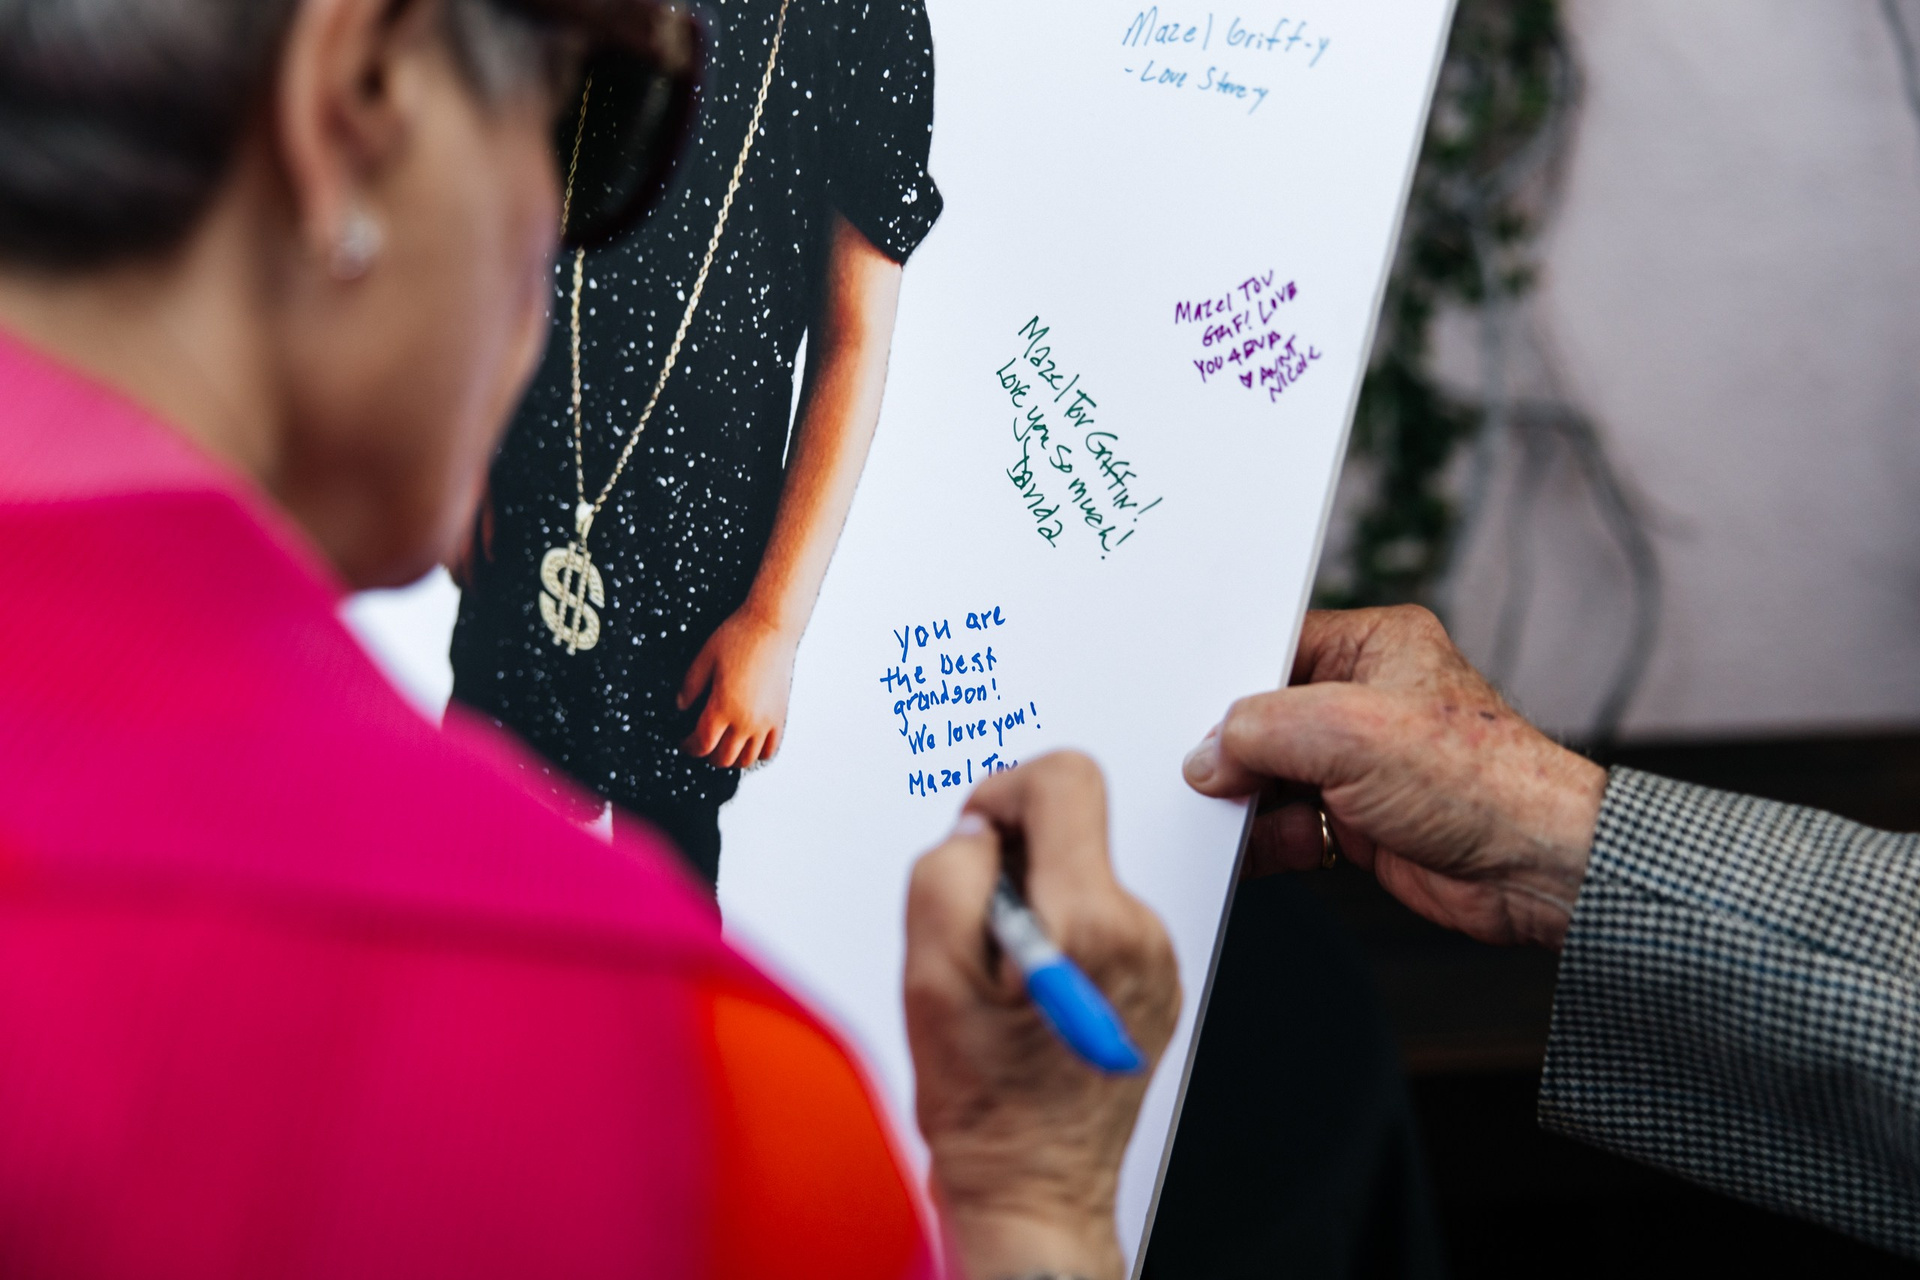 Mazel Griff-y
- Love Steve-y
MAZEl TOV
GRIF! LOVE
YOU 4EVA
AUNT
NICOLE
Mazel Tov Griffin!
Love you so much!
Davida
You are
the best
grandson!
We love you!
Mazel Tov